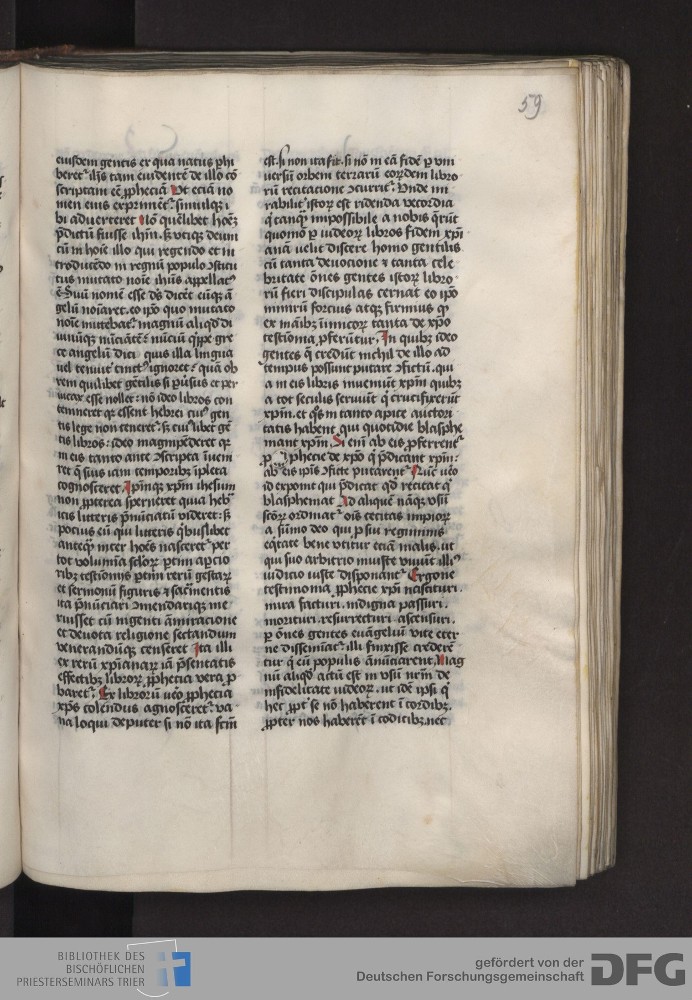 59
eiusdem gentis ex qua natus ꝓhi
beret᷑ iħs tam euidentē de illo cō
scriptam eē ꝓpheciā Ut eciā no
men eius exprimēt᷑ simulqꝫ i
bi aduerteret nō quēlibet hoēꝫ
p̄dictū fuisse iħm. sꝫ vtiqꝫ deum
cū in hoīe illo qui regendo et in
troducēdo in regnū populo ↄstitu
tus mutato noīe iħus appellat᷑
ē Suū nomē esse dꝰ dicēt eūqꝫ ā
gelū noīaret. eo ipo quo mutato
noīe mittebat᷑ magnū aliqd̓ di
uinūqꝫ nūciātē nūciū q̓ppe gre
ce angelū dici quis illa lingua
vel tenuit᷑ tinctꝰ ignoret᷑ quā ob
rem quilibet gētilis si ꝑuersus et per
uicax esse nollet nō ideo libros con
temneret qꝛ essent hebrei cuiꝰ gen
tis lege non teneret᷑. sꝫ cuiꝰlibet gē
tis libros ideo magnipēderet qꝛ
in eis tanto ante ↄscripta inueni
ret q̄ suis iam temporibꝫ īpleta
cognosceret Ipm̄qꝫ xp̄m ihesum
non ꝓpterea sperneret quia heb̓
icis litteris p̄nūciatū videret sꝫ
pocius eū qui litteris q̓buslibet
anteq̄ꝫ inter hoēs nasceret᷑ per
tot volumīa sclorꝝ ꝑtim apcio
ribꝫ testioniis ꝑtim rerū gestarꝝ
et sermonū figuris ⁊ sac̓mentis
ita p̄nūciari ↄmendariqꝫ me
ruisset cū ingenti āmiracione
et deuota religione sectandum
venerandūqꝫ censeret Ita illi
ex rerū xp̄ianarꝝ iā p̄sentatis
effectibꝫ librorꝝ ꝓphecia vera ꝓ
baret᷑ Ex librorū ūo ꝓphecia
xp̄s colendus agnosceret᷑ va
na loqui deputer si nō ita fctm̄
est. si non ita fit. si nō in eā fidē ꝑ vni
uersū orbem terrarū eorꝝdem libro
rū recitacione ↄcurrit᷑ Unde mi
rabilit᷑ istorꝝ est ridenda vecordia
q̄ tanqꝫ impossibile a nobis q̄rūt
quomō ꝑ iudeorꝝ libros fidem xp̄i
anā velit discere homo gentilis
cū tanta deuocione ⁊ tanta cele
britate ōnes gentes istorꝝ libro
rū fieri discipulas cernāt eo ipō
nimirū forcius atqꝫ firmius qꝛ
ex manibꝫ inimicorꝝ tanta de xp̄o
testionia ꝓferūtur. In quibꝫ ideo
gentes q̄ credūt nichil de illo ad
tempus possunt putare ↄfictū. qui
a in eis libris inueniūt xp̄m quibꝫ
a tot seculis seruiūt q̄ crucifixerūt
xp̄m. et q̄si in tanto apice auctori
tatis habent qui quotidie blasphe
mant xp̄m. Si eni ab eis ꝓferrent᷑
ꝓphecie de xp̄o q̄ p̄dicant xp̄m
ab eis ip̄is ↄficte putarent᷑ Nūc ūo
id exponit qui p̄dicat qd̓ recitat q̄
blasphemat Ad aliquē nāqꝫ vsū
sctorꝝ ordinat᷑ oīs cecitas impiorꝝ
a sūmo deo qui ꝓ sui regiminis
eq̓tate bene vtitur eciā malis. ut
qui suo arbitrio iniuste viuūt illiꝰ
iudicio iuste disponant᷑ Ergo ne
testimonia ꝓphecie xp̄i nascituri.
mira facturi. indigna passuri.
morituri. resurrecturi. ascensuri.
ꝑ ōnes gentes euāgeliū vite eter
ne disseminat᷑ illi finxisse crederē
tur q̄ eū populis ānūciarent. Mag
nū aliqd̓ actū est in vsū nrm̄ de
infidelitate iudeorꝝ. ut idē ipsi q̄
hec ꝓpt᷑ se nō haberent ī cordibꝫ.
ꝓpter nos haberēt ī codicibꝫ. nec
BIBLIOTHEK DES
BISCHÖFLICHEN
PRIESTERSEMINARS TRIER
gefördert von der
Deutschen Forschungsgemeinschaft
DFG